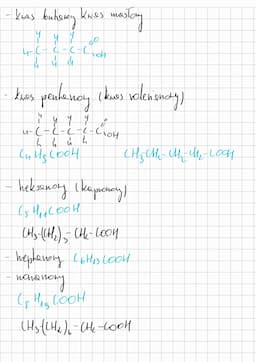 - kwas butanowy kwas masłowy
H H H
H-C-C-C-C=O
OH
H H H
- kwas pentanowy (kwas walerianowy)
H H H H
H-C-C-C-C-C=O
OH
H H H H
C4H9COOH CH3-CH2-CH2-CH2-COOH
- heksanowy (kapronowy)
C5H11COOH
CH3-(CH2)3-CH2-COOH
- heptanowy C6H13COOH
- nonanowy
COOH
CH3-(CH2)6-CH2-COOH